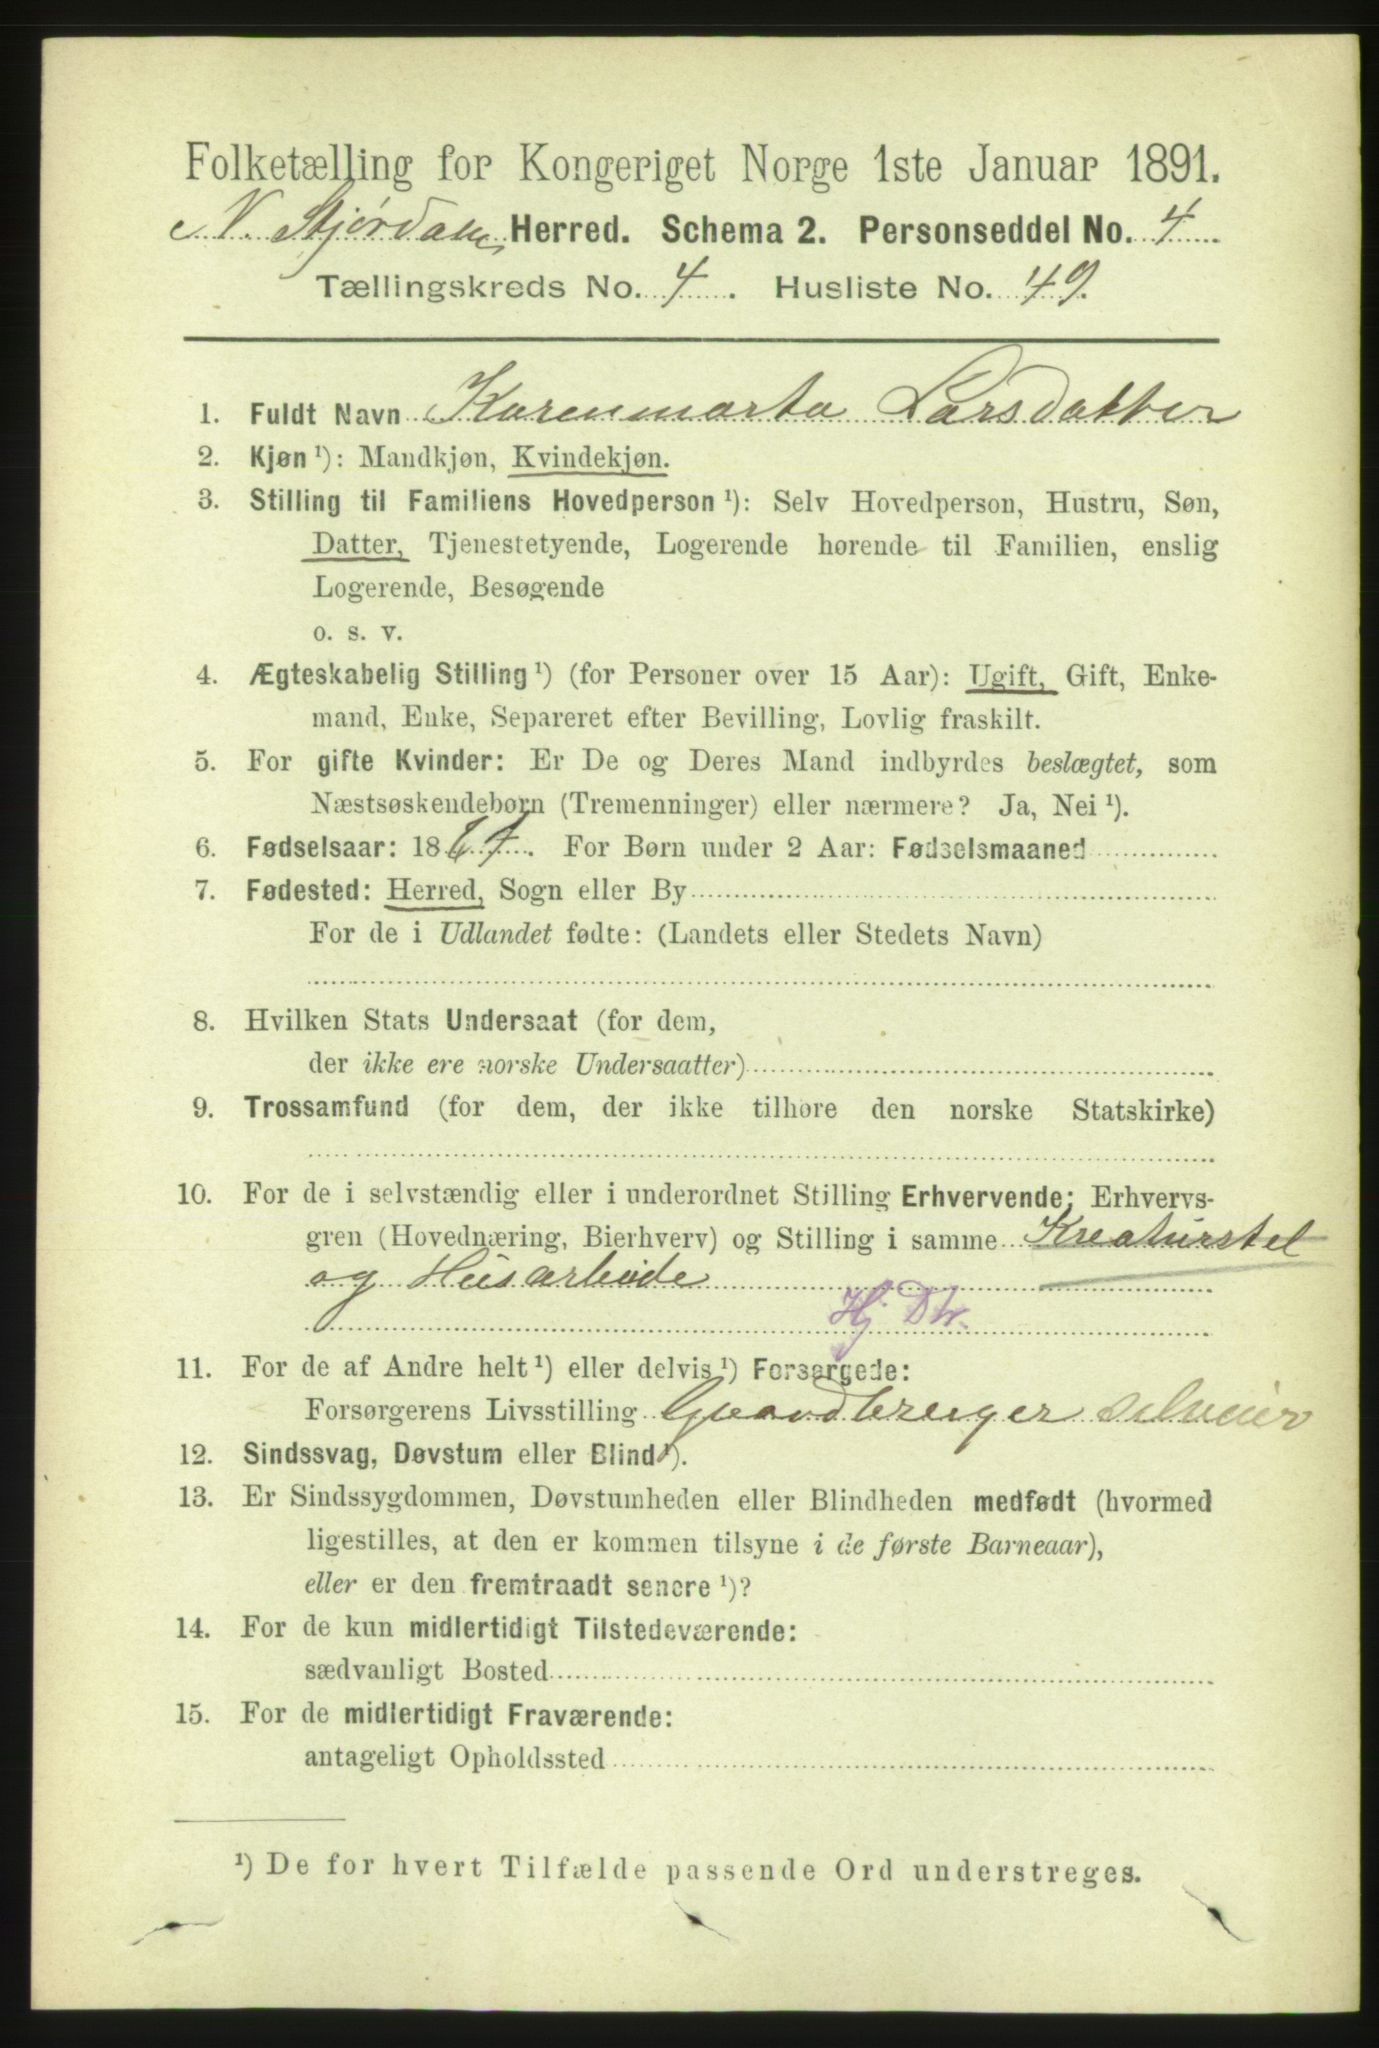 Folketælling for Kongeriget Norge 1ste Januar 1891.
N. Stjørdalens Herred. Schema 2. Personseddel No. 4
Tællingskreds No. 4. Husliste No. 49.
1. Fuldt Navn Karenmarta Larsdatter
2. Kjøn ¹): Mandkjøn, Kvindekjøn.
3. Stilling til Familiens Hovedperson ¹): Selv Hovedperson, Hustru, Søn,
Datter, Tjenestetyende, Logerende hørende til Familien, enslig
Logerende, Besøgende
o. s. v.
4. Ægteskabelig Stilling ¹) (for Personer over 15 Aar): Ugift, Gift, Enke-
mand, Enke, Separeret efter Bevilling, Lovlig fraskilt.
5. For gifte Kvinder: Er De og Deres Mand indbyrdes beslægtet, som
Næstsøskendebørn (Tremenninger) eller nærmere? Ja, Nei ¹).
6. Fødselsaar: 1867. For Børn under 2 Aar: Fødselsmaaned
7. Fødested: Herred, Sogn eller By
For de i Udlandet fødte: (Landets eller Stedets Navn)
8. Hvilken Stats Undersaat (for dem,
der ikke ere norske Undersaatter)
9. Trossamfund (for dem, der ikke tilhøre den norske Statskirke)
10. For de i selvstændig eller i underordnet Stilling Erhvervende: Erhvervs-
gren (Hovednæring, Bierhverv) og Stilling i samme Kreaturstel
og Husarbeide
Hj Dtr.
11. For de af Andre helt ¹) eller delvis ¹) Forsørgede:
Forsørgerens Livsstilling Gaardbruger selveier
12. Sindssvag, Døvstum eller Blind ¹).
13. Er Sindssygdommen, Døvstumheden eller Blindheden medfødt (hvormed
ligestilles, at den er kommen tilsyne i de første Barneaar),
eller er den fremtraadt senere ¹)?
14. For de kun midlertidigt Tilstedeværende:
sædvanligt Bosted
15. For de midlertidigt Fraværende:
antageligt Opholdssted
¹) De for hvert Tilfælde passende Ord understreges.